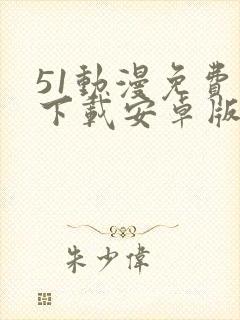 51動漫免費
下載安卓版
朱少偉